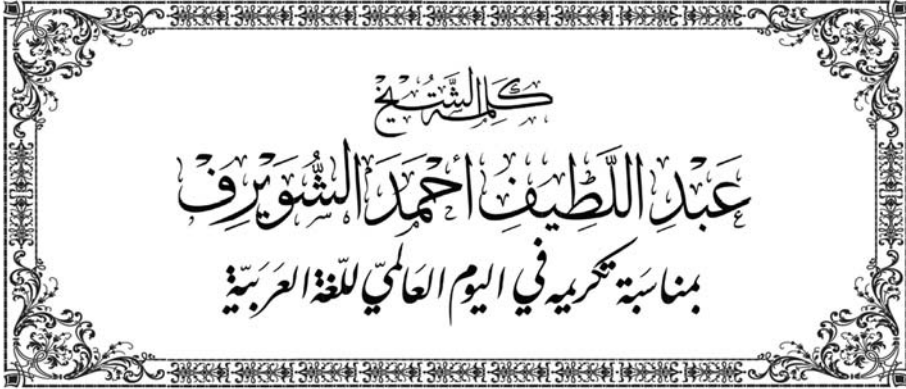 كلمة الشيخ
عَبْدِ اللَّطِيفِ أحْمَدَ الشُّوَيْرِفْ
بمناسَبة تكريمه في اليوم العَالميّ للّغة العَرَبيّة